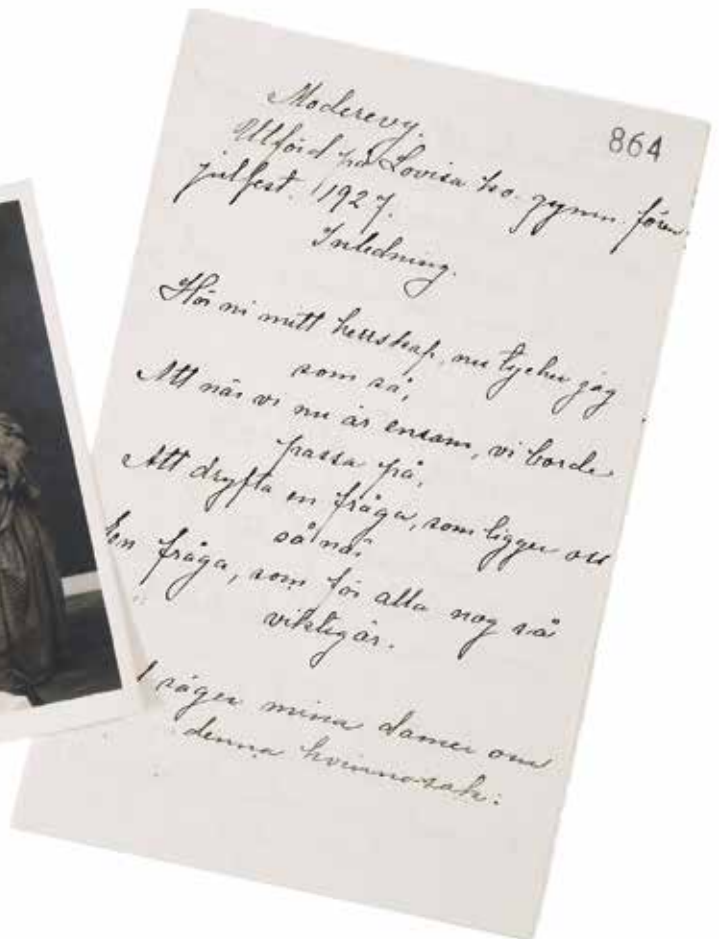 864
Moderevy.
Utförd på Lovisa sv. gymn. fören.
julfest. 1927.
Inledning.
Hör ni mitt herrskap, nu tycker jag
som så,
Att när vi nu är ensam, vi borde
passa på,
Att dryfta en fråga, som ligger oss
så när
En fråga, som för alla nog så
viktig är.
säger mina damer om
denna kvinnosak: